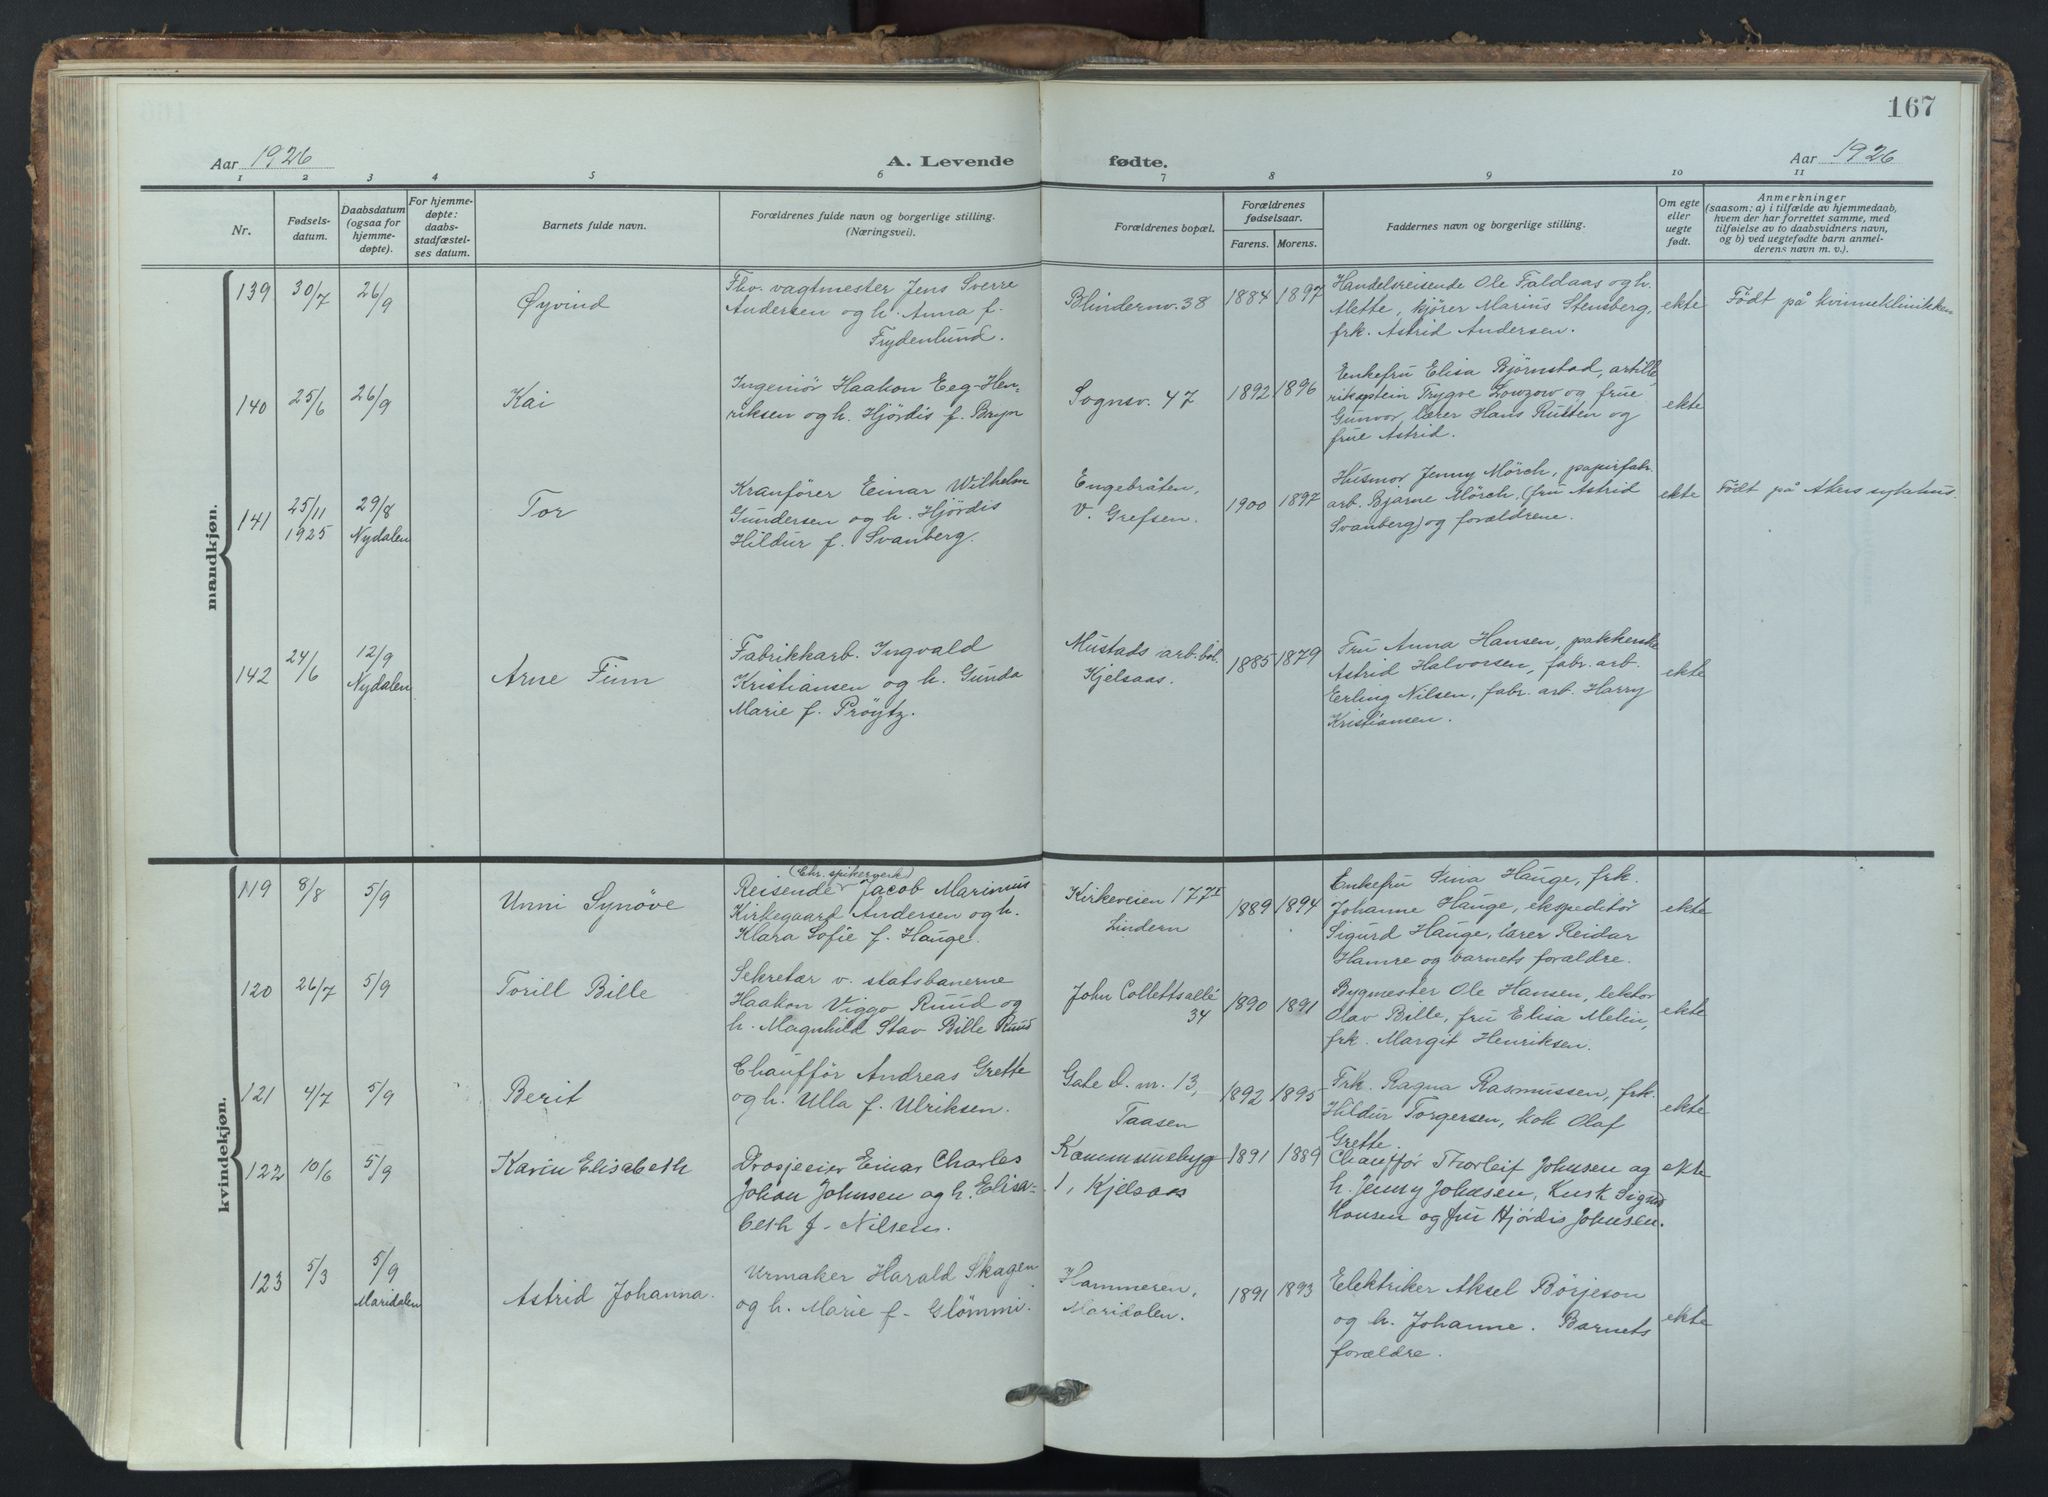 167
Aar 1926
A. Levende fødte.
Aar 1926
1 2 3 4 5 6 7 8 9 10 11
Nr.
Fødsels-
datum.
Daabsdatum
(ogsaa for
hjemme-
døpte).
For hjemme-
døpte:
daabs-
stadfæstel-
ses datum.
Barnets fulde navn.
Forældrenes fulde navn og borgerlige stilling.
(Næringsvei).
Forældrenes bopæl.
Forældrenes
fødselsaar.
Farens. Morens.
Faddernes navn og borgerlige stilling.
Om egte
eller
uegte
født.
Anmerkninger
(saasom: a) i tilfælde av hjemmedaab,
hvem der har forrettet samme, med
tilføielse av to daabsvidners navn,
og b) ved uegtefødte barn anmel-
derens navn m. v.).
mandkjøn.
139
30/7
26/9
Øyvind
Fhv. vagtmester Jens Sverre
Andersen og h. Anna f.
Frydenlund.
Blindernv. 38
1884 1897
Handelsreisende Ole Faldaas og h.
Mette, kjører Marius Stensberg,
frk. Astrid Andersen.
ekte
Født på kvinneklinikken
140
25/6
26/9
Kai
Ingeniör Haakon Eeg-Hen-
riksen og h. Hjördis f. Bryn
Sognsv. 47
1892 1896
Enkefru Elisa Bjørnstad, artille
rikaptein Trygve Lowzow og frue
Gunvor, lærer Hans Rusten og
frue Astrid.
ekte
141
25/11
1925
29/8
Nydalen
Tor
Kranförer Einar Wilhelm
Gundersen og h. Hjördis
Hildur f. Svanberg.
Engebråten,
V. Grefsen.
1900 1897
Husmor Jenny Mörch, papirfabr.
arb. Bjarne Mörch, (fru Astrid
Svanberg) og forældrene.
ekte
Født på Akers sykehus.
142
24/6
12/9
Nydalen
Arne Finn
Fabrikkarb. Ingvald
Kristiansen og h. Gunda
Marie f. Pröytz.
Mustads arb.bol.
Kjelsaas.
1885 1879
Fru Anna Hansen, pakkerske
Astrid Halvorsen, fabr. arb.
Erling Nilsen, fabr. arb. Harry
Kristiansen.
ekte
kvindekjøn.
119
8/8
5/9
Unni Synöve
(Chr. spikerverk)
Reisende Jacob Marinius
Kirkegaard Andersen og h.
Klara Sofie f. Hauge.
Kirkeveien 177 I
Lindern
1889 1894
Enkefru Sina Hauge, frk.
Johanne Hauge, ekspeditör
Sigurd Hauge, lærer Reidar
Hamre og barnets forældre.
ekte
120
26/7
5/9
Torill Bille
Sekretær v. statsbanerne
Haakon Viggo Ruud og
h. Magnhild Stav Bille Ruud
John Colletts allé
34
1890 1891
Bygmester Ole Hansen, lektor
Olav Bille, fru Elisa Melin,
frk. Margit Henriksen.
ekte
121
4/7
5/9
Berit
Chauffør Andreas Grette
og h. Ulla f. Ulriksen.
Gate D. nr. 13,
Taasen
1892 1895
Frk. Ragna Rasmussen, frk.
Hildur Torgersen, kok Olaf
Grette.
ekte
122
10/6
5/9
Karin Elisabeth
Drosjeeier Einar Charles
Johan Johnsen og h. Elisa-
beth f. Nilsen.
Kommunebyg
1, Kjelsaas
1891 1889
Chauffør Thorleif Johnsen og
h. Jenny Johnsen, Kusk Sigurd
Hansen og fru Hjørdis Johnsen.
ekte
123
5/3
5/9
Maridalen
Astrid Johanna.
Urmaker Harald Skagen
og h. Marie f. Glömmi.
Hammeren,
Maridalen.
1891 1893
Elektriker Aksel Börjeson
og h. Johanne. Barnets
forældre.
ekte